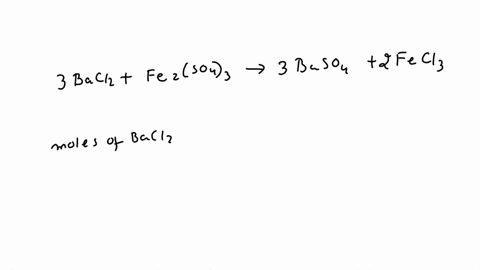 3 BaCl2 + Fe2(SO4)3 → 3 BaSO4 + 2FeCl3
moles of BaCl2